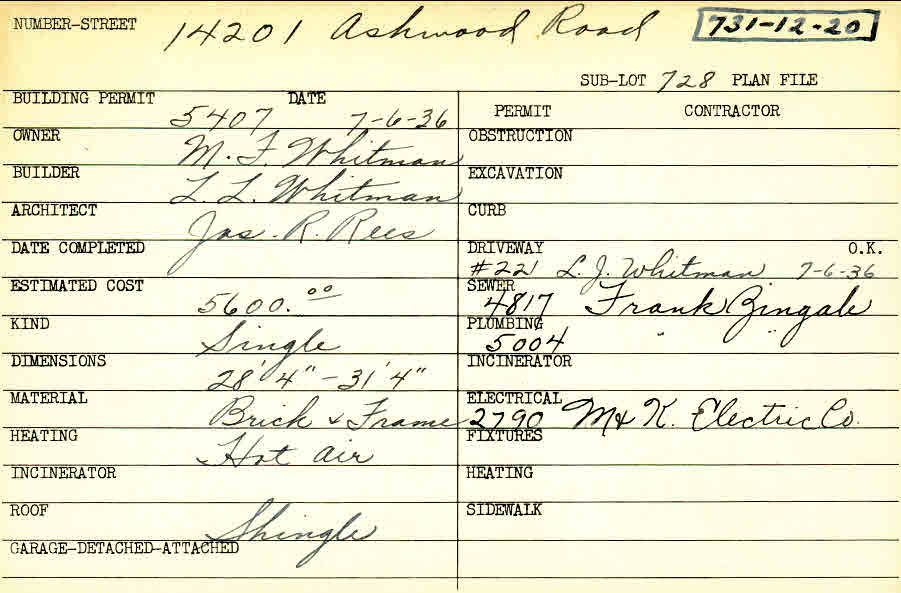 NUMBER-STREET 14201 Ashwood Road 731-12-20
SUB-LOT 728 PLAN FILE
BUILDING PERMIT 5407 DATE 7-6-36
OWNER M. F. Whitman
BUILDER L. L. Whitman
ARCHITECT Jas. R. Rees
DATE COMPLETED
ESTIMATED COST 5600.00
KIND Single
DIMENSIONS 28'4" - 31'4"
MATERIAL Brick & Frame
HEATING Hot air
INCINERATOR
ROOF Shingle
GARAGE-DETACHED-ATTACHED
PERMIT CONTRACTOR
OBSTRUCTION
EXCAVATION
CURB
DRIVEWAY O.K.
#221 L. J. Whitman 7-6-36
SEWER
4817 Frank Zingale
PLUMBING
5004 " "
INCINERATOR
ELECTRICAL
2790 M & K. Electric Co.
FIXTURES
HEATING
SIDEWALK